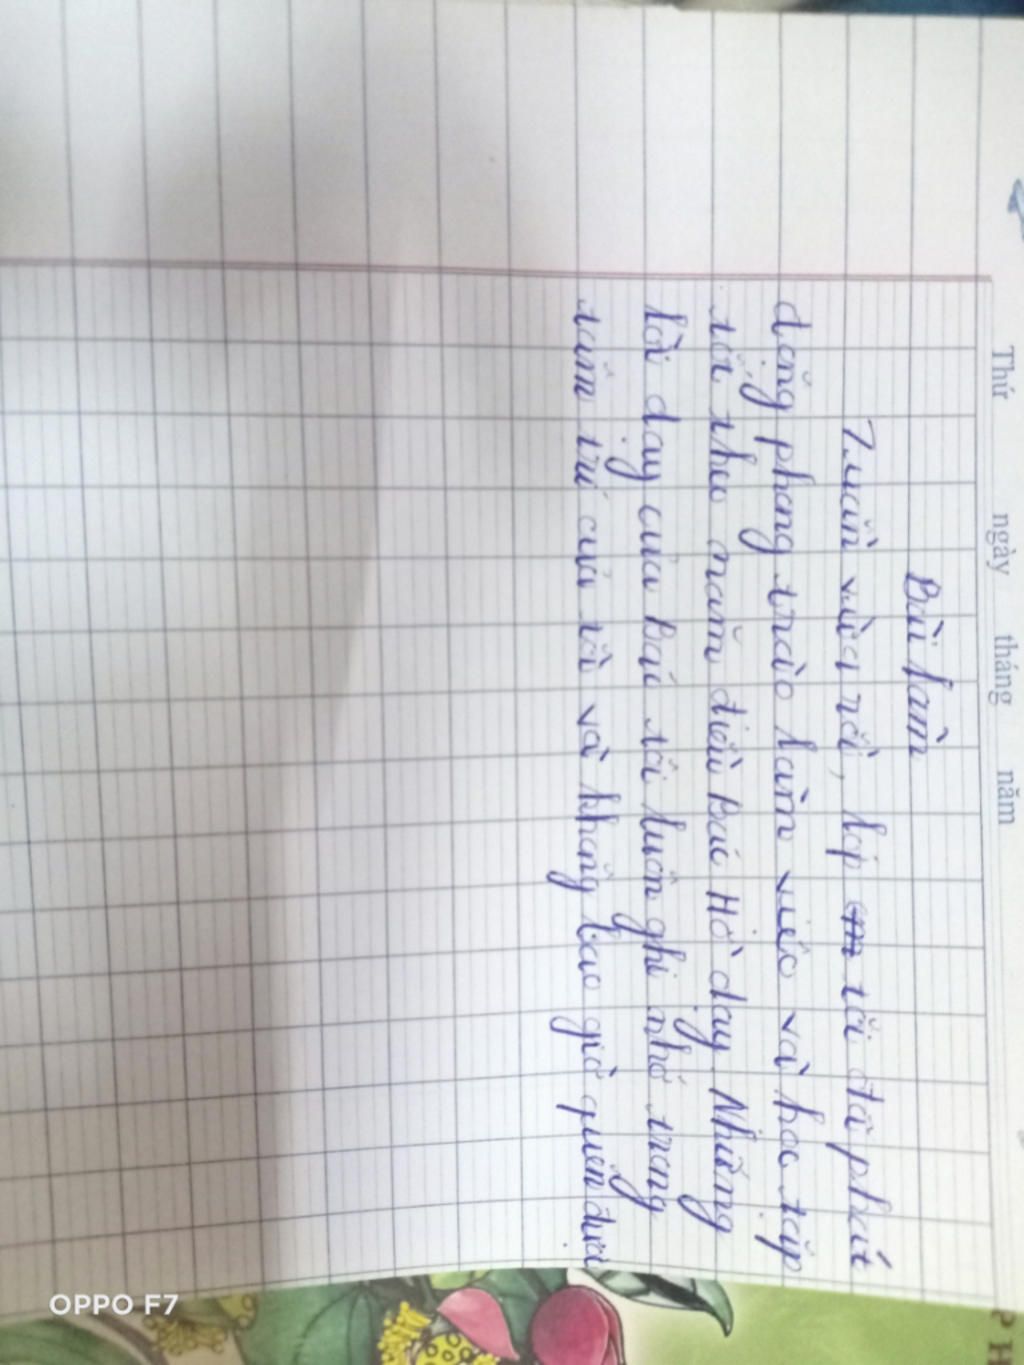 Thứ ngày tháng năm
Bài làm
Tuần vừa rồi, lớp tôi đã phát
động phong trào làm việc và học tập
tốt theo năm điều Bác Hồ dạy. Những
lời dạy của Bác tôi luôn ghi nhớ trong
tâm trí của tôi và không bao giờ quên được
OPPO F7